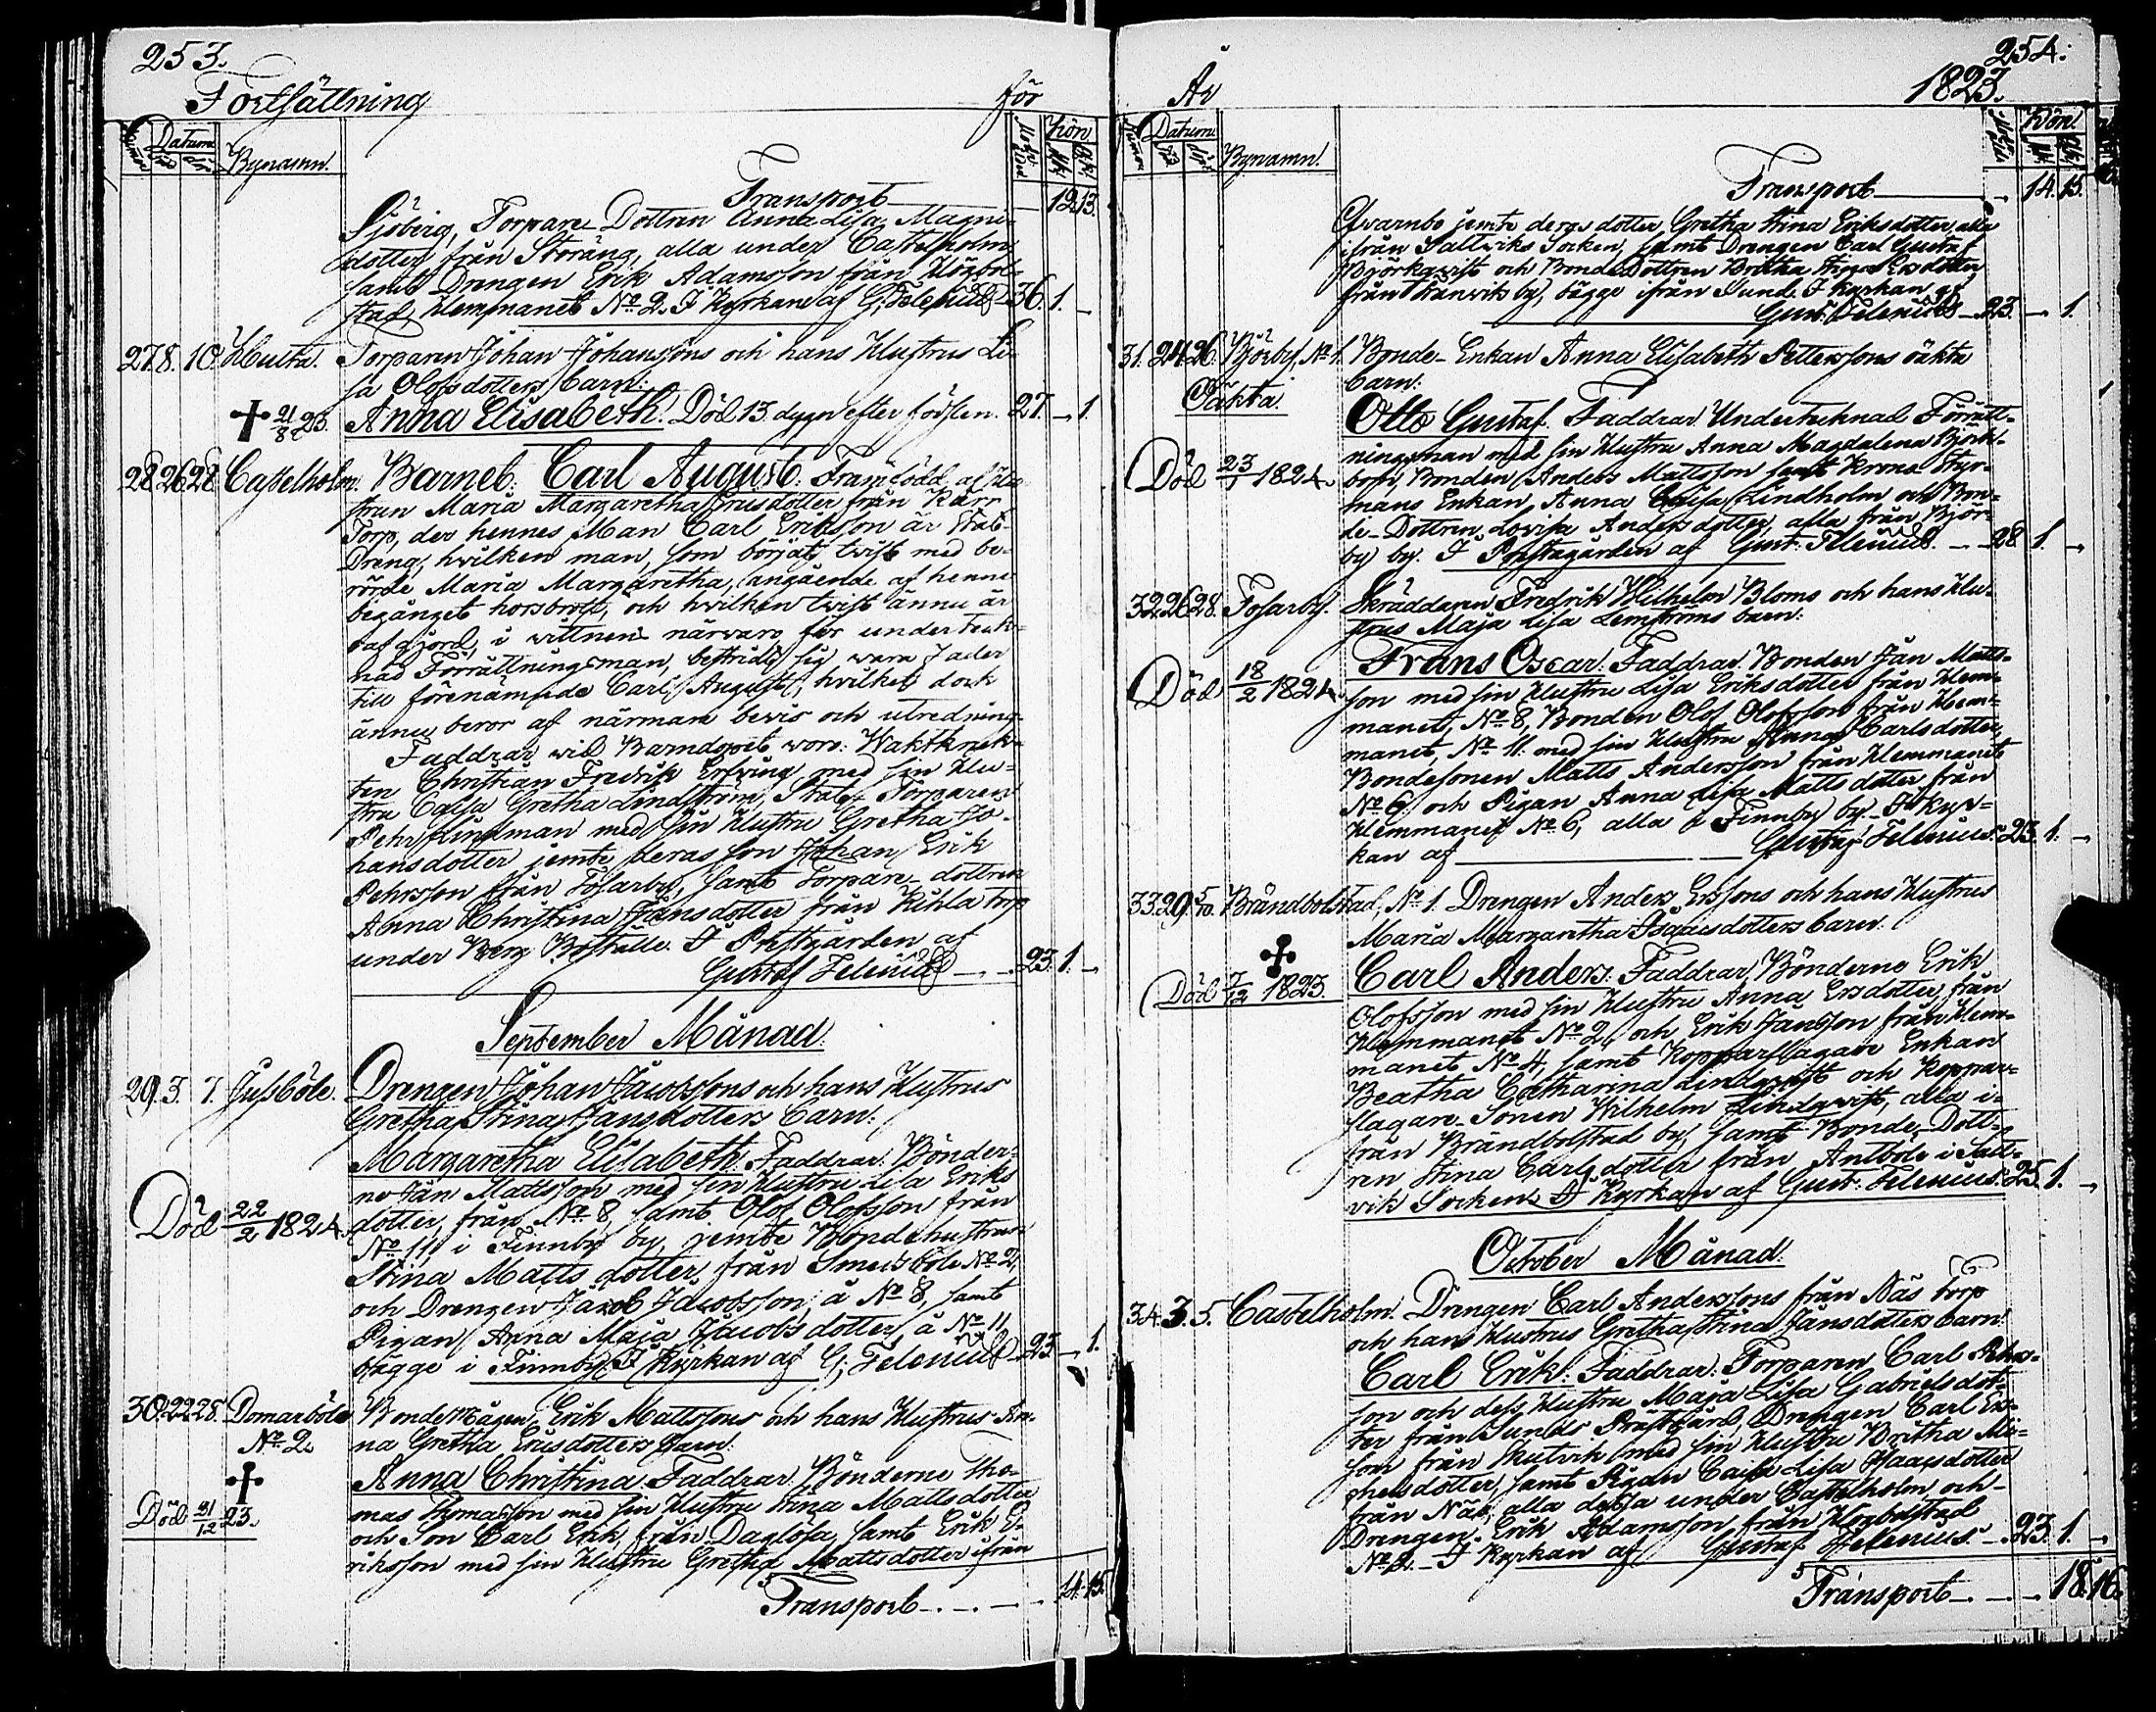 253.
Fortsättning för
Numer Datum Bynamn. Moders ålder Kön.
född döpt Mk. Qk.
Transport 12. 13.
Sjöberg, Torpare Dottren Anna Lisa Magni-
dotter från Storäng, alla under Castelholm,
samt Drengen Erik Adamsson från Högbol-
stad, Hemmanet No 2. I Kyrkan af G: Felenius 36. 1. –
27. 8. 10. Hulta. Torparen Johan Johanssons och hans Hustrus Li-
sa Olofsdotters barn:
✝ 21/8 23. Anna Elisabeth. Död 13 dygn efter födslen. 27. – 1.
28. 26. 28. Castelholm. Barnet: Carl August. Framfödd af Hu-
strun Maria Margaretha Ersdotter från Kärr
Torp, der hennes Man Carl Ericsson är Stat-
Dreng, hvilken man, som börjat twist med be-
rörde Maria Margaretha, angående af henne
begånget horsbrott, och hvilken twist ännu är
oafgjord, i wittnens närvaro för underteck-
nad Förrättningsman, bestridt sig wara fader
till förenämnde Carl August, hvilket dock
ännu beror af närmare bevis och utredning.
Faddrar wid Barndopet woro: Waktknek-
ten Christian Fredrik Erfving med sin Hu-
stru Cajsa Gretha Lindström, Stats Torparen
Pehr Lindman med sin Hustru Gretha Jo-
hansdotter jemte deras son Johan Erik
Pehrsson från Tosarby, samt Torpare-dottren
Anna Christina Jansdotter från Kihla torp
under Berg Boställe. I Prestgården af
Gustaf Felenius 23. 1. –
September Månad.
29. 3. 7. Jussböle. Drengen Johan Jacobssons och hans Hustrus
Gretha Stina Jansdotters barn:
Margaretha Elisabeth. Faddrar: Bönder-
ne Jan Mattsson med sin Hustru Lisa Eriks
Död 22/2 1824. dotter, från No 8, samt Olof Olofsson från
No 11, i Finnby by, jemte Bondehustrun
Stina Matts dotter, från Smedsböle No 2,
och Drengen Jacob Jacobsson, å No 8, samt
Pigan Anna Maja Jacobs dotter, å No 11,
bägge i Finnby. I Kyrkan af G: Felenius 23. – 1.
30. 22. 28. Domarböle Bondemågen, Erik Mattssons och hans Hustrus An-
No 2. na Gretha Ersdotters barn:
✝ Anna Christina. Faddrar. Bönderne Tho-
mas Thomasson med sin Hustru Stina Mattsdotter
Död 31/12 23. och Son Carl Erik från Daglösa, samt Erik E-
riksson med sin Hustru Gretha Mattsdotter ifrån
Transport 14. 15.
254.
År 1823.
Numer Datum Bynamn. Moders ålder Kön.
född döpt Mk. Qk.
Transport 14. 15.
Qvarnbo jemte deras dotter Gretha Stina Eriksdotter, alla
ifrån Saltviks Socken, samt Drengen Carl Gustaf
Björkqvist och Bonde Dottren Britha Stina Ersdotter
från Tranvik by, bägge ifrån Sund. I Kyrkan af
Gust: Felenius 23. – 1.
31. 24. 26. Björby, No 1. Bonde-Enkan Anna Elisabeth Petterssons oäkta
Oäkta. barn:
Otto Gustaf. Faddrar: Undertecknad Förrätt-
ningsman med sin Hustru Anna Magdalena Björk-
Död 23/1 1824. bom, Bonden Anders Mattsson samt Krono Styr-
mans Enkan, Anna Cajsa Lindholm och Bon-
de-Dottren Lovisa Andersdotter, alla från Björ-
by by. I Prestegården af Gust: Felenius. 28. 1. –
32. 26. 28. Tosarby. Skräddaren Fredrik Wilhelm Bloms och hans Hu-
strus Maja Lisa Lemströms barn:
Frans Oscar. Faddrar. Bonden Jan Matts-
Död 18/2 1824. son med sin Hustru Lisa Eriksdotter från Hem-
manet, No 8, Bonden Olof Olofsson från Hem-
manet, No 11. med sin Hustru Anna Carlsdotter,
Bondesonen Matts Andersson från Hemmanet
No 6, och Pigan Anna Lisa Mattsdotter från
Hemmanet No 6, alla i Finnby by. I Kyr-
kan af Gustaf Felenius. 23. 1. –
33. 29. 5/10. Brändbolstad, No 1. Drengen Anders Erssons och hans Hustrus
Maria Margaretha Isaacsdotters barn:
✝ Carl Anders. Faddrar, Bönderne Erik
Död 7/12 1823. Olofsson med sin Hustru Anna Ersdotter, från
Hemmanet No 2, och Erik Jansson från Hem-
manet No 4, samt Kopparslagare Enkan
Beatha Catharina Lindqvist och Koppar-
slagare-Sonen Wilhelm Lindqvist, alla i-
från Brändbolstad by, samt Bonde-Dott-
ren Stina Carlsdotter från Antböle i Salt-
vik Socken. I Kyrkan af Gust: Felenius. 25. 1. –
October Månad.
34. 3. 5. Castelholm. Drengen Carl Anderssons från Näs torp
och hans Hustrus Gretha Stina Jansdotters barn:
Carl Erik. Faddrar. Torparen Carl Pehrs-
son och dess Hustru Maja Lisa Gabrielsdot-
ter från Sunds Prästgård, Drengen Carl Ers-
son från Hulvik med sin Hustru Britha Mi-
chelsdotter, samt Pigan Caisa Lisa Isaacsdotter
från Näs, alla dessa under Castelholm, och
Drengen, Erik Adamsson från Högbolstad
No 2. I Kyrkan af Gustaf Felenius. 23. 1. –
Transport 18. 16.